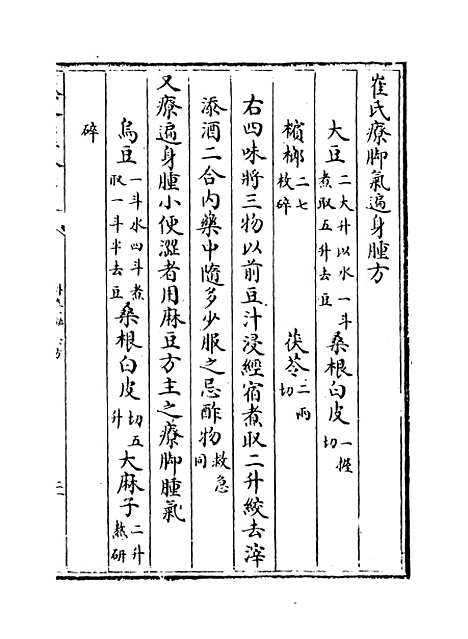 崔氏療脚氣遍身腫方
大豆二大升以水一斗煮取五升去豆 桑根白皮一握切
檳榔二七枚碎 茯苓二兩切
右四味將三物以前豆汁浸經宿煮取二升絞去滓
添酒二合内藥中隨多少服之忌酢物救急同
又療遍身腫小便澀者用麻豆方主之療脚腫氣
烏豆一斗水四斗煮取一斗半去豆 桑根白皮切五升 大麻子二升熬研
碎